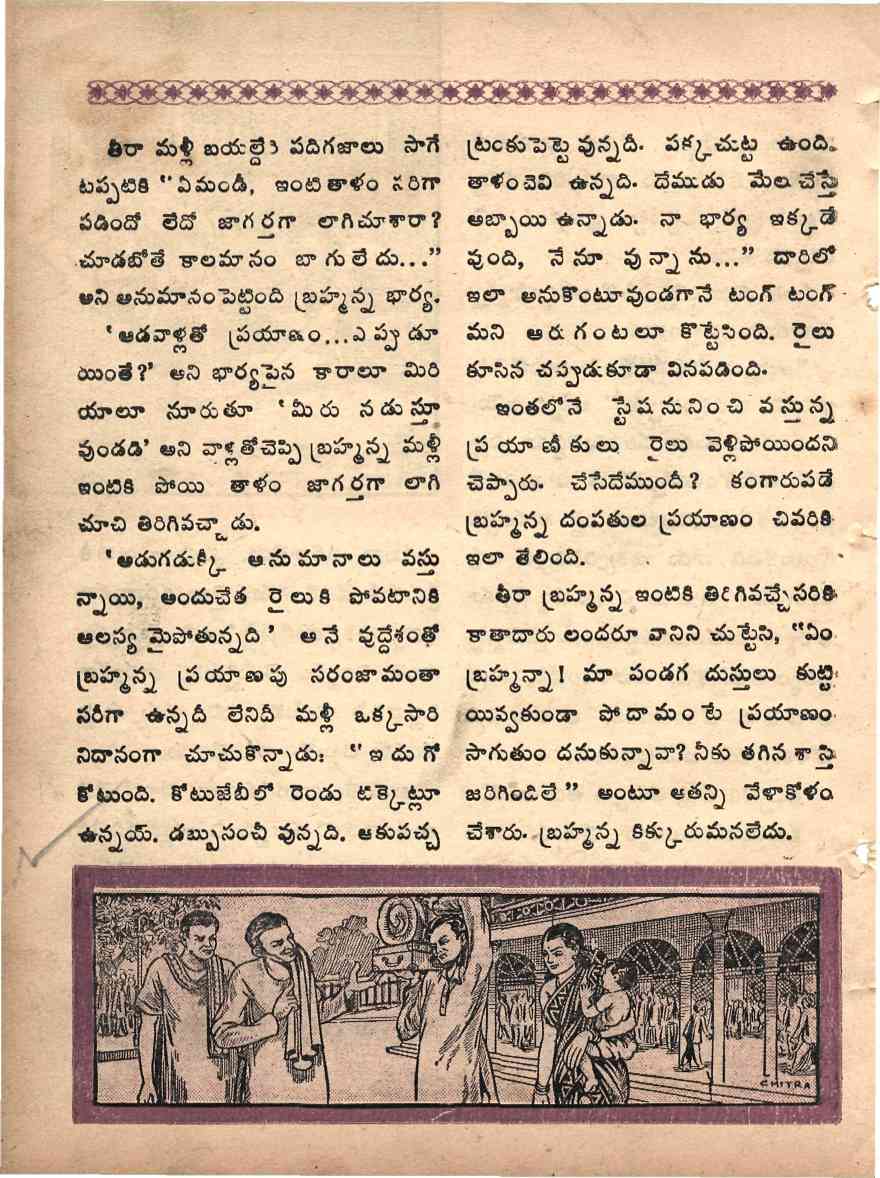 తీరా మళ్లీ బయల్దేరి పదిగజాలు సాగే
టప్పటికి “ఏమండీ, ఇంటితాళం సరిగా
పడిందో లేదో జాగర్తగా లాగిచూశారా?
చూడబోతే కాలమానం బాగులేదు...”
అని అనుమానంపెట్టింది బ్రహ్మన్న భార్య.
‘ఆడవాళ్లతో ప్రయాణం...ఎప్పుడూ
యింతే?’ అని భార్యపైన కారాలూ మిరి
యాలూ నూరుతూ ‘మీరు నడుస్తూ
వుండడి’ అని వాళ్లతోచెప్పి బ్రహ్మన్న మళ్లీ
ఇంటికి పోయి తాళం జాగర్తగా లాగి
చూచి తిరిగివచ్చాడు.
‘అడుగడుక్కీ అనుమానాలు వస్తు
న్నాయి, అందుచేత రైలుకి పోవటానికి
ఆలస్యమైపోతున్నది’ అనే వుద్దేశంతో
బ్రహ్మన్న ప్రయాణపు సరంజామంతా
సరీగా ఉన్నదీ లేనిదీ మళ్లీ ఒక్కసారి
నిదానంగా చూచుకొన్నాడు: “ఇదుగో
కోటుంది. కోటుజేబీలో రెండు టిక్కెట్లూ
ఉన్నయ్. డబ్బుసంచీ వున్నది. ఆకుపచ్చ
ట్రంకుపెట్టె వున్నదీ. పక్కచుట్ట ఉంది.
తాళంచెవి ఉన్నది. దేముడు మేలుచేస్తే
అబ్బాయి ఉన్నాడు. నా భార్య ఇక్కడే
వుంది, నేనూ వున్నాను...” దారిలో
ఇలా అనుకొంటూవుండగానే టంగ్ టంగ్
మని ఆరుగంటలూ కొట్టేసింది. రైలు
కూసిన చప్పుడుకూడా వినపడింది.
ఇంతలోనే స్టేషనునించి వస్తున్న
ప్రయాణీకులు రైలు వెళ్లిపోయిందని
చెప్పారు. చేసేదేముందీ? కంగారుపడే
బ్రహ్మన్న దంపతుల ప్రయాణం చివరికి
ఇలా తేలింది.
తీరా బ్రహ్మన్న ఇంటికి తిరిగివచ్చేసరికి
కాతాదారు లందరూ వానిని చుట్టేసి, “ఏం
బ్రహ్మన్నా! మా పండగ దుస్తులు కుట్టి
యివ్వకుండా పోదామంటే ప్రయాణం
సాగుతుం దనుకున్నావా? నీకు తగిన శాస్తి
జరిగిందిలే” అంటూ అతన్ని వేళాకోళం
చేశారు. బ్రహ్మన్న కిక్కురుమనలేదు.
CHITRA